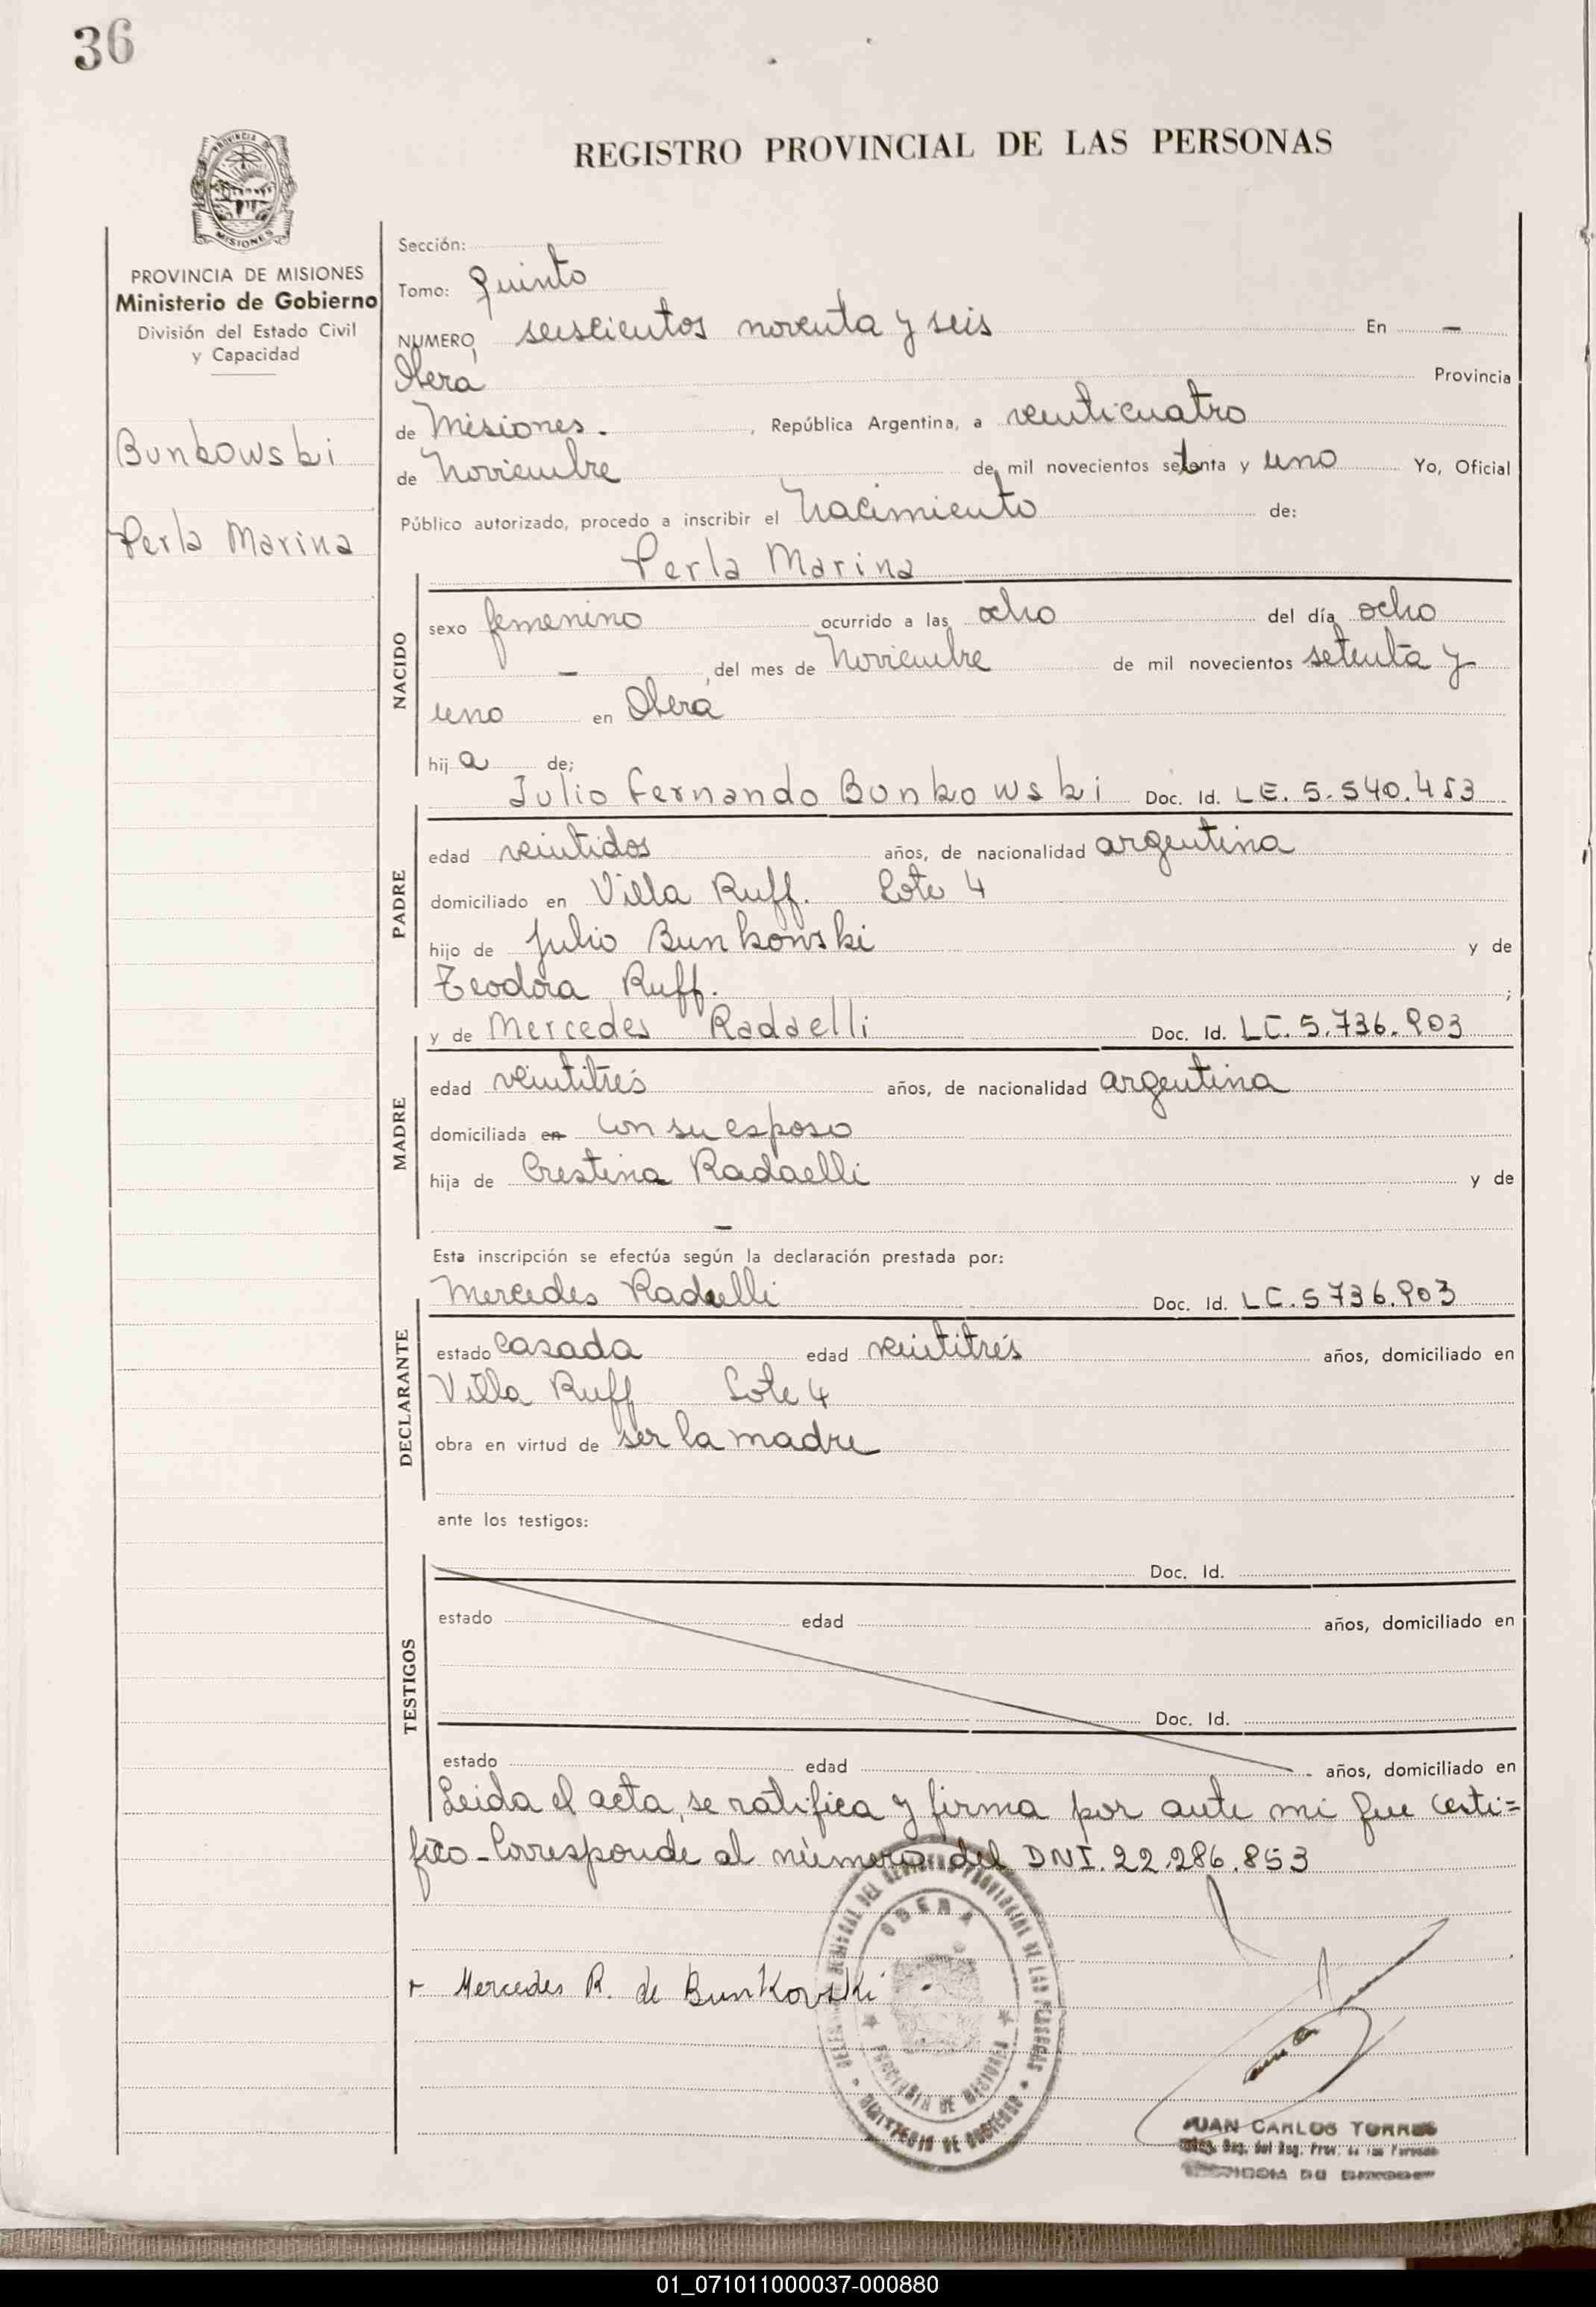 36
REGISTRO PROVINCIAL DE LAS PERSONAS
PROVINCIA
MISIONES
PROVINCIA DE MISIONES
Ministerio de Gobierno
División del Estado Civil
y Capacidad
Bunkowski
Perla Marina
Sección:
Tomo: Quinto
NUMERO seiscientos noventa y seis En –
Oberá Provincia
de Misiones. , República Argentina, a veinticuatro
de Noviembre de mil novecientos setenta y uno Yo, Oficial
Público autorizado, procedo a inscribir el Nacimiento de:
Perla Marina
NACIDO
sexo femenino ocurrido a las ocho del día ocho
– , del mes de Noviembre de mil novecientos setenta y
uno en Oberá
hij a de;
Julio Fernando Bunkowski Doc. Id. LE. 5.540.453
PADRE
edad veintidos años, de nacionalidad argentina
domiciliado en Villa Ruff. Lote 4
hijo de Julio Bunkowski y de
Teodora Ruff. ;
y de Mercedes Radaelli Doc. Id. LC. 5.736.903
MADRE
edad veintitrés años, de nacionalidad argentina
domiciliada en con su esposo
hija de Crestina Radaelli y de
–
Esta inscripción se efectúa según la declaración prestada por:
Mercedes Radaelli Doc. Id. LC. 5736.903
DECLARANTE
estado casada edad veintitrés años, domiciliado en
Villa Ruff Lote 4
obra en virtud de ser la madre
ante los testigos:
TESTIGOS
Doc. Id.
estado edad años, domiciliado en
Doc. Id.
estado edad años, domiciliado en
Leida el acta, se ratifica y firma por ante mi que certi=
fico - Corresponde al número del DNI. 22.286.853
OBERA
PROVINCIA DE MISIONES
MINISTERIO DE GOBIERNO
Mercedes R. de Bunkovski
JUAN CARLOS TORRES
Reg. Prov. de las Personas
01_071011000037-000880